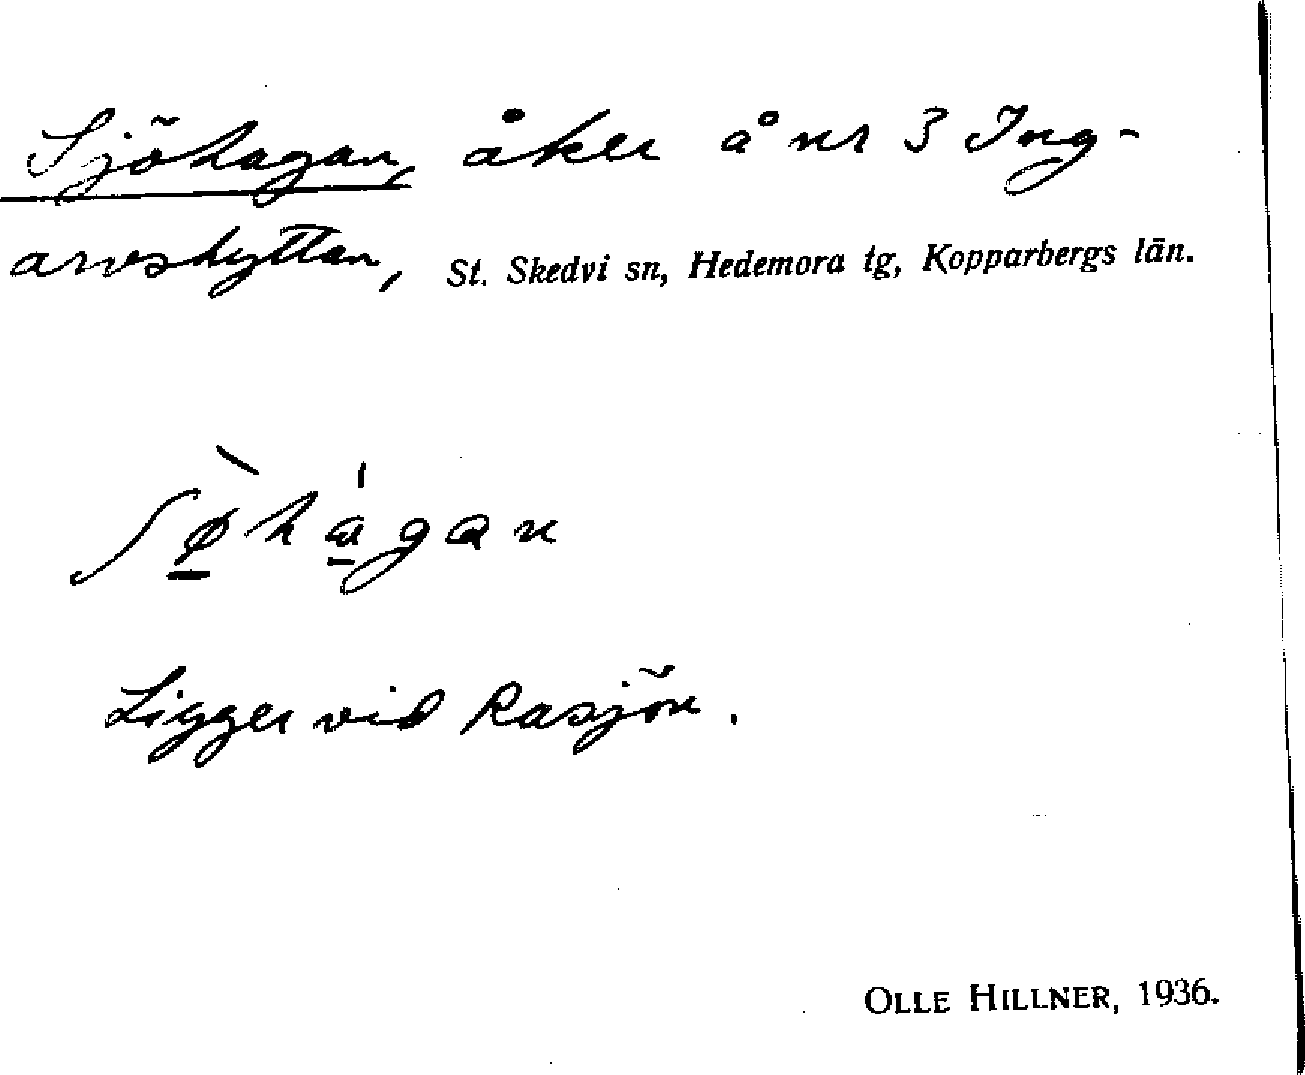 Sjöhagan, åker å nr 3 Ing-
arvshyttan, St. Skedvi sn, Hedemora tg, Kopparbergs län.
ʃø̱̀ha̱̍gan
Ligger vid Rasjön.
OLLE HILLNER, 1936.